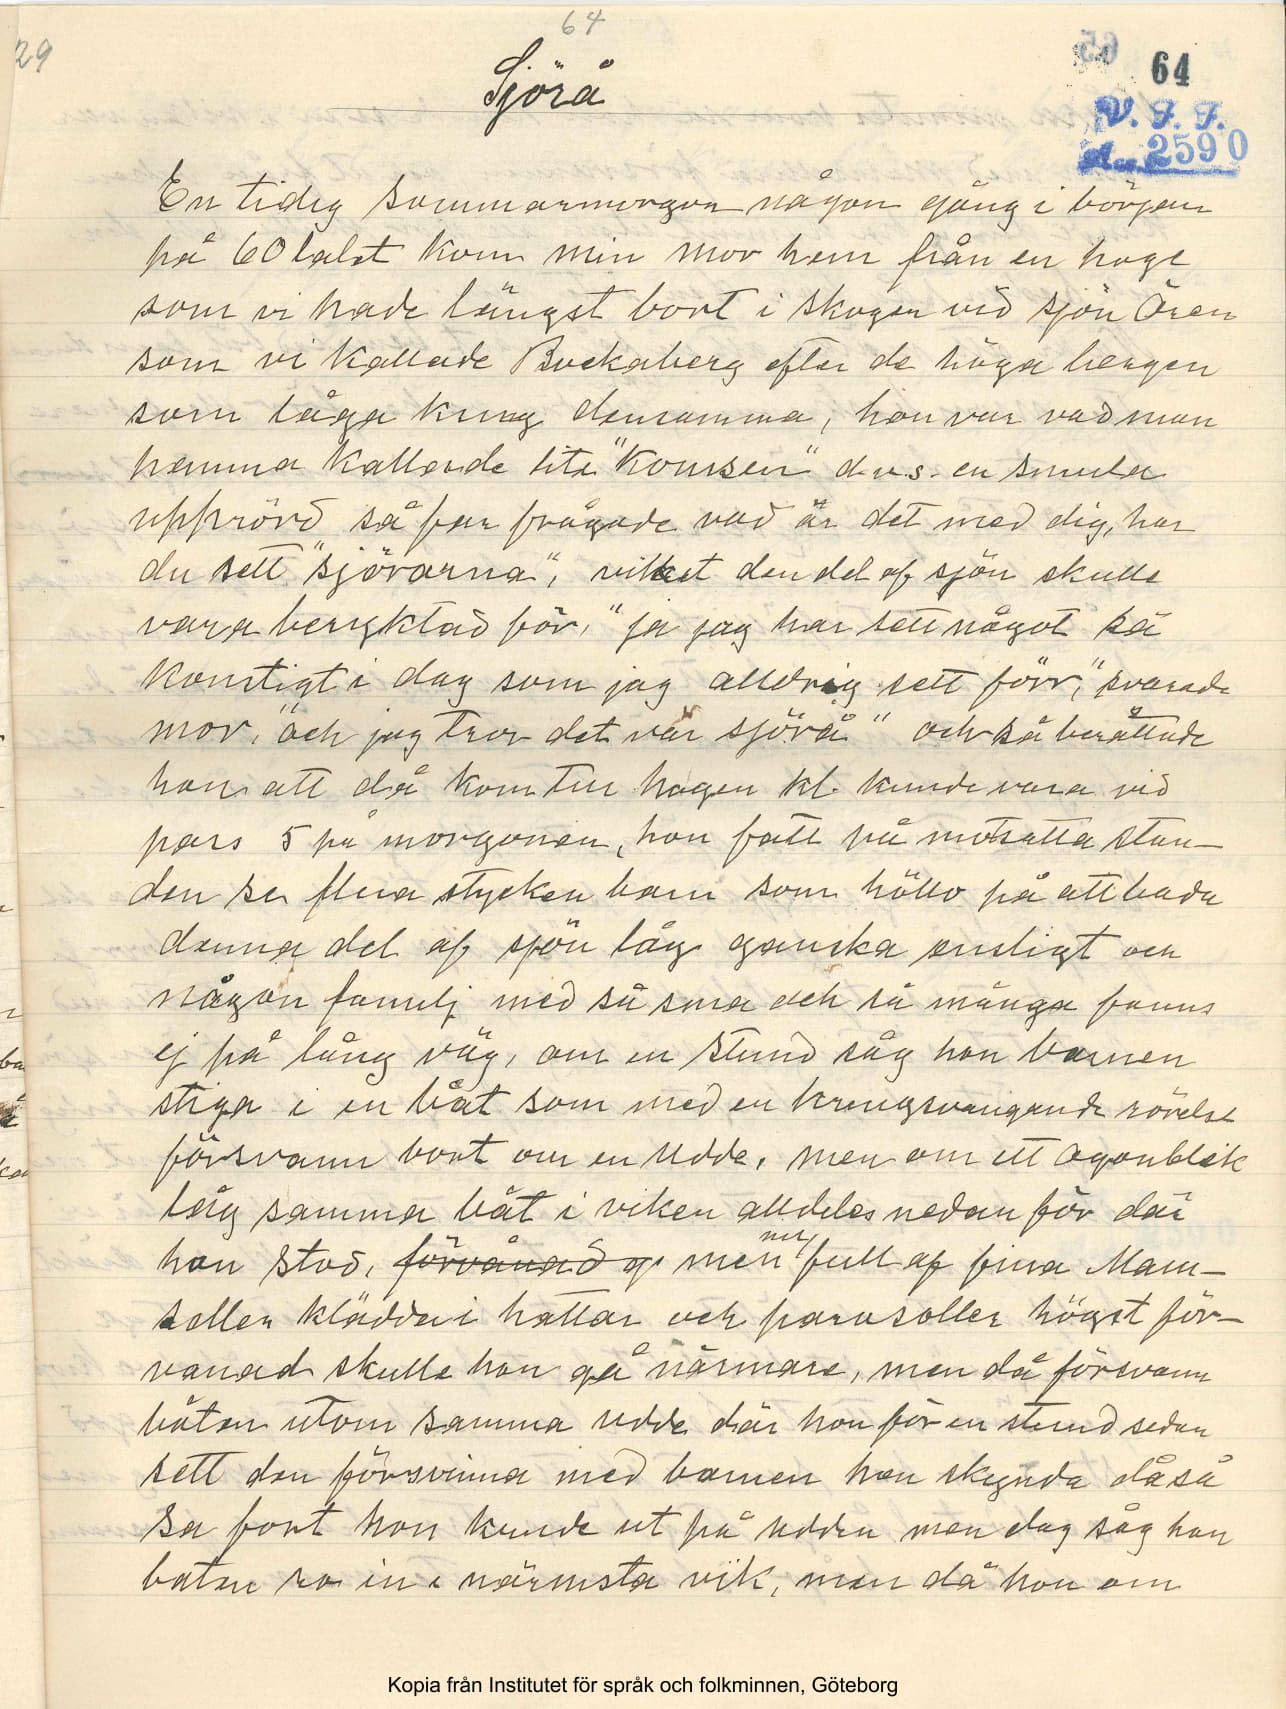 64
29
Sjörå
64
V. F. F.
2590
En tidig sommarmorgon någon gång i början
på 60 talet kom min mor hem från en hage
som vi hade längst bort i skogen vid sjön Ören
som vi kallade Bockaberg efter de höga bergen
som låga kring densamma, hon var vad man
hemma kallade lite "konsen" d.v.s. en smula
upprörd så far frågade vad är det med dig, har
du sett "sjörårna", vilket den del af sjön skulle
vara beryktad för, "ja jag har sett något så
konstigt i dag som jag alldrig sett förr," svarade
mor, "och jag tror det var sjörå" och så berättade
hon att då kom till hagen kl. kunde vara vid
pass 5 på morgonen, hon fått på motsatta stran-
den se flera stycken barn som höllo på att bada
denna del af sjön låg ganska ensligt och
någon familj med så små och så många fanns
ej på lång väg, om en stund såg hon barnen
stiga i en båt som med en kringsvängande rörelse
försvann bort om en udde, men om ett ögonblick
låg samma båt i viken alldeles nedanför där
hon stod, förvånad g men nu full af fina Mam-
seller klädda i hattar och parasoller högst för-
vånad skulle hon gå närmare, men då försvann
båten utom samma udde där hon för en stund sedan
sett den försvinna med barnen hon skynda då så
sa fort hon kunde ut på udden men dag såg hon
båten ro in i närmsta vik, men då hon om
Kopia från Institutet för språk och folkminnen, Göteborg